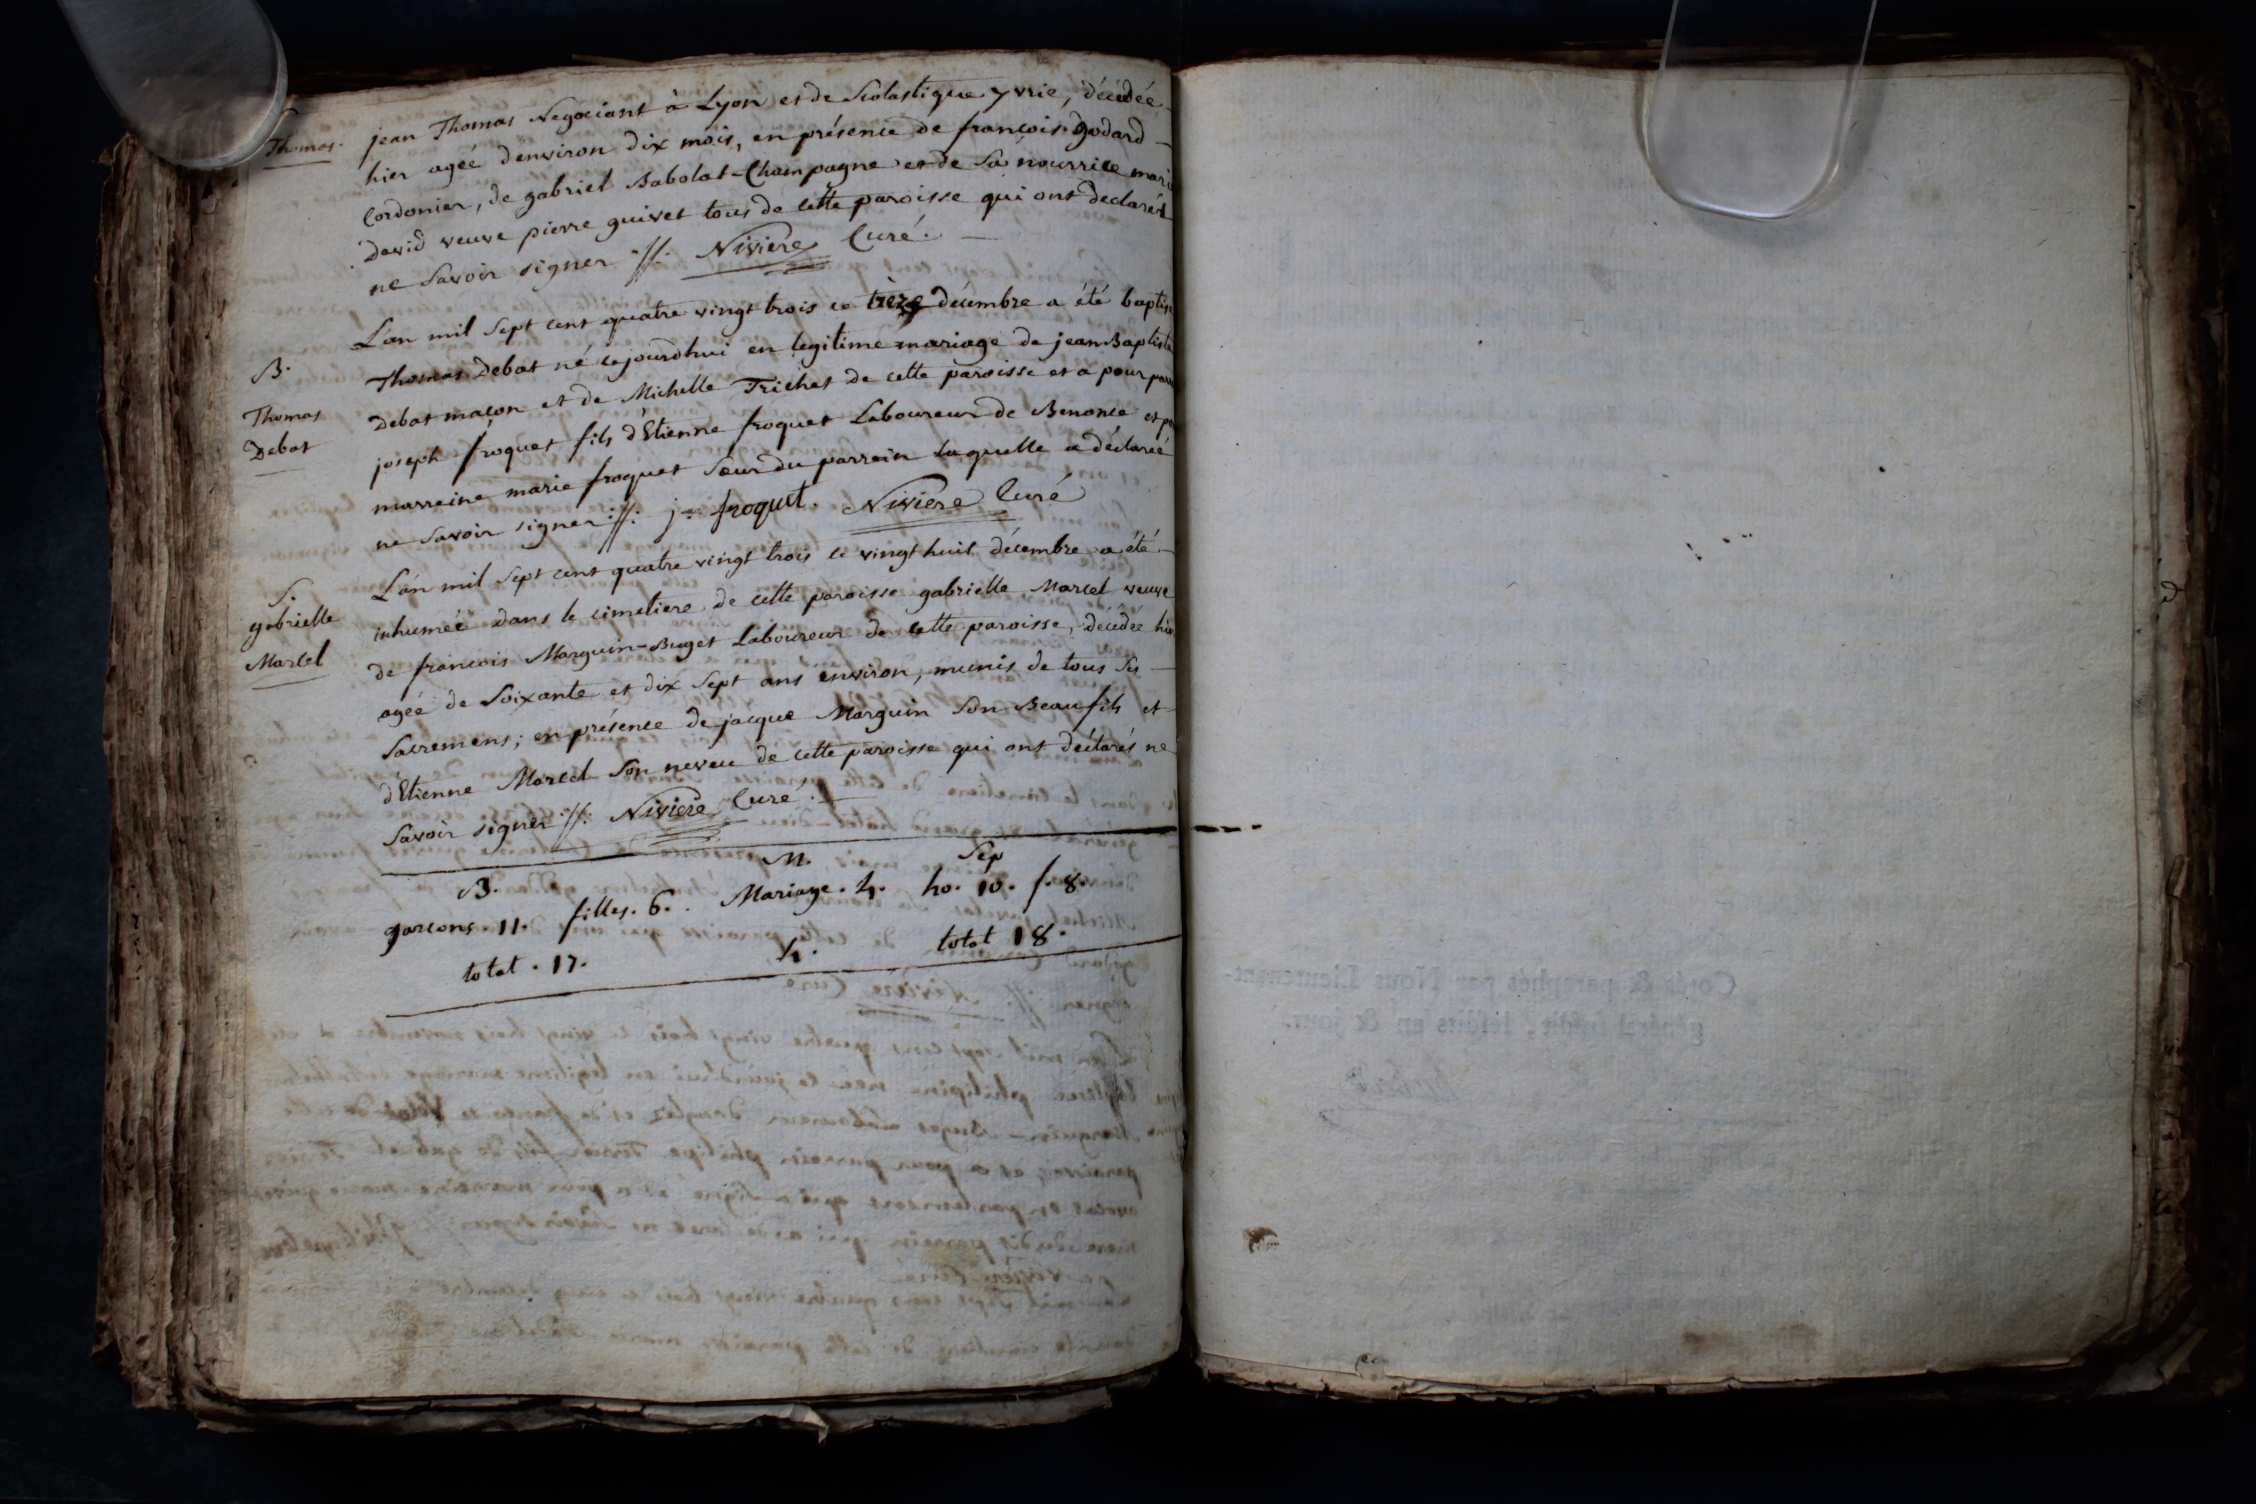 Thomas.
jean Thomas Negociant à Lyon et de Scolastique yvrie, décédée
hier agée denviron dix mois, en présence de francois Godard
Cordonier, de gabriel Babolat-Champagne et de Sa nourrice mari
David veuve pierre guivet tous de cette paroisse qui ont declarés
ne Savoir signer //. Nivière Curé.
B.
Thomas
Debat
L'an mil Sept cent quatre vingt trois le treze décembre a été baptis
Thomas Debat né cejourdhui en legitime mariage de jean Baptiste
Debat maçon et de Michelle Trichet de cette paroisse et a pour parr
joseph froquet fils d'Etienne froquet Laboureur de Benonce et p
marreine marie froquet Sœur du parrein laquelle a déclaréé
ne Savoir signer //: j froquet. Niviere Curé
S.
gabrielle
Martel
L'an mil Sept cent quatre vingt trois le vingt huit décembre a été
inhumée dans le cimetiere de cette paroisse gabrielle Martel veuve
de francois Marguin-Buget Laboureur de cette paroisse, décédée hier
agée de Soixante et dix Sept ans environ, munis de tous Ses
Sacremens; en présence de jacque Marguin Son Beaufils et
d'Etienne Martel Son neveu de cette paroisse qui ont déclarés ne
Savoir signer //: Niviere Curé.
B. M. Sep
garcons. 11. filles. 6. Mariage. 4. ho. 10. f. 8.
total. 17. 4. total 18.